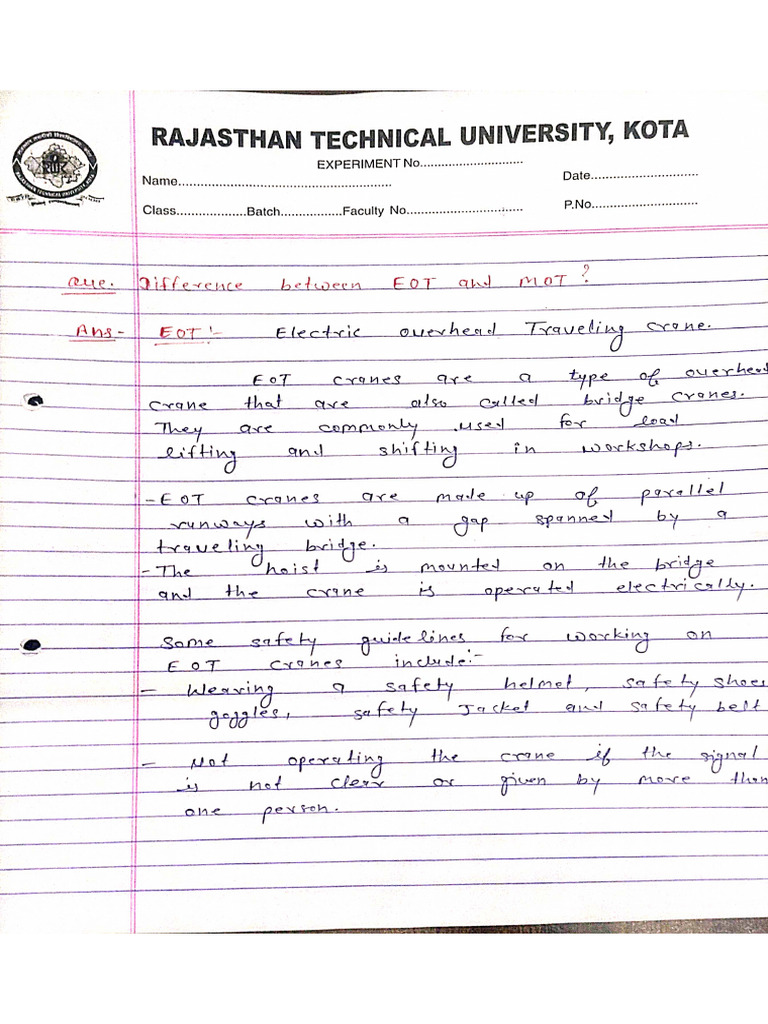 RAJASTHAN TECHNICAL UNIVERSITY, KOTA
EXPERIMENT No............................
Name......................................................... Date.............................
Class...................Batch.................Faculty No............................... P.No............................
RAJASTHAN TECHNICAL UNIVERSITY, KOTA
Que. Difference between EOT and MOT?
Ans- EOT:- Electric overhead Traveling crane.
EOT cranes are a type of overhead
crane that are also called bridge cranes.
They are commonly used for load
lifting and shifting in workshops.
- EOT cranes are made up of parallel
runways with a gap spanned by a
traveling bridge.
- The hoist is mounted on the bridge
and the crane is operated electrically.
Some safety guidelines for working on
EOT cranes include:-
- Wearing a safety helmet, safety shoes
goggles, safety Jacket and safety belt
- Not operating the crane if the signal
is not clear or given by more than
one person.